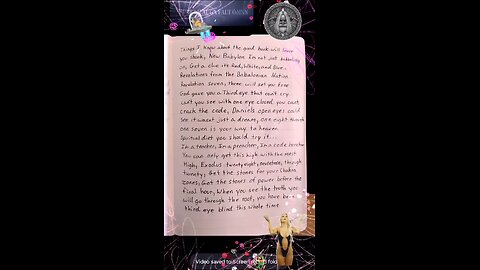 Things I know about the good book will leave
you shook, New Babylon Im not just babbling
on, Get a clue its Red, White, and Blue.
Revelations from the Babalonian Nation
Revelation seven, three will set you free
God gave you a Third eye that can't cry
can't see with one eye closed you can't
crack the code, Daniels open eyes could
see it wasnt just a dream, one eight through
one seven is your way to heaven.
Spiritual diet you should try it...
Im a teacher, Im a preacher, Im a code breaker
You can only get this high with the most
High, Exodus twenty eight, seventeen, through
twenty; Get the stones for your Chakra
zones, Got the stones of power before the
final hour, When you see the truth you
will go through the roof, you have been
third eye blind this whole time
Video saved to Screen record fold